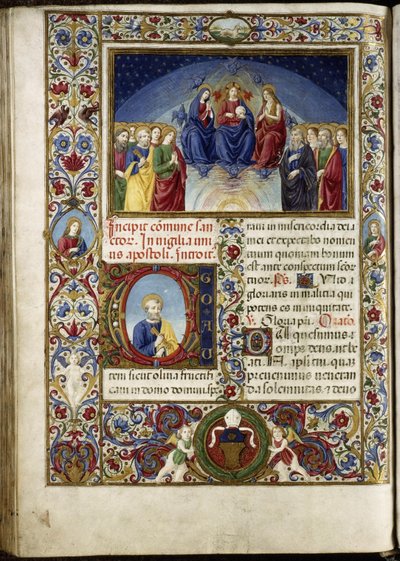 Incipit comune san
ctor. In vigilia uni
us apostoli. Introit.
EGO AU
tem sicut oliva fructifi
cavi in domo domini spe
ravi in misericordia dei
mei et expectabo nomen
tuum quoniam bonum
est ante conspectum
tuor. Ps. Quid
gloriaris in malicia qui
potens es in iniquitate.
V. Gloria pri. Oratio.
quesumus
omnipotens
ut beati
N. apostoli
venturam
da solemnitas & deus